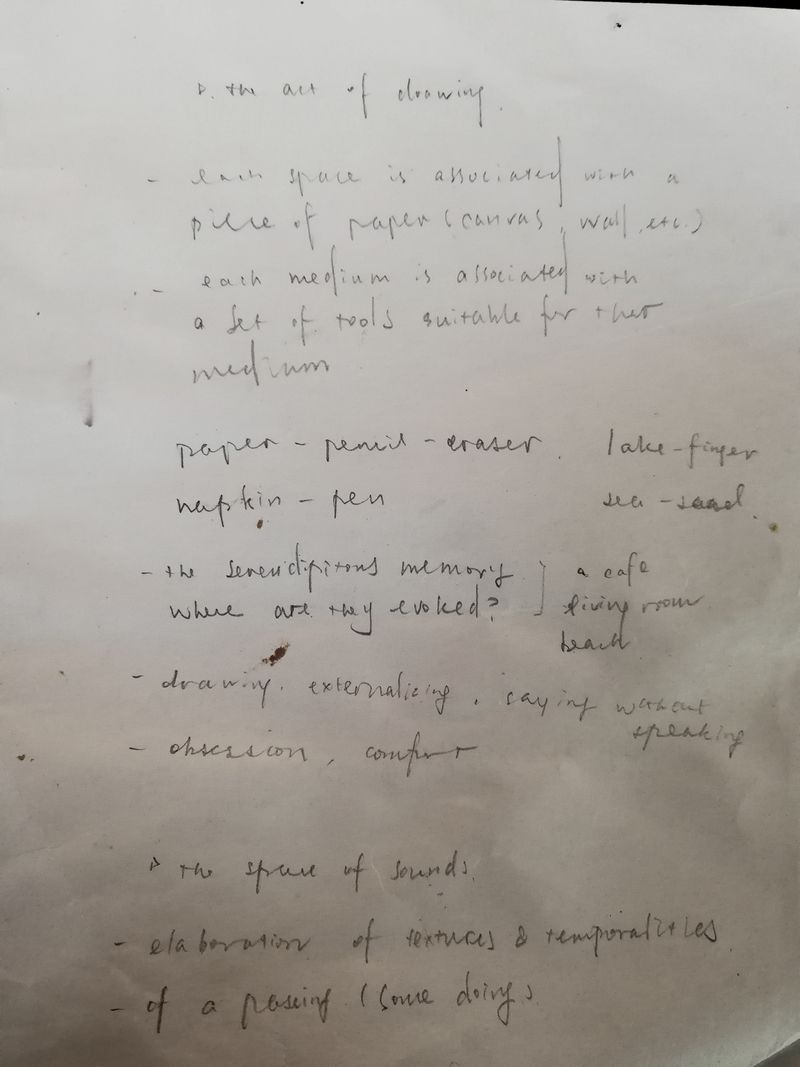 ▷. the act of drawing.
- each space is associated with a
piece of paper (canvas, wall, etc.)
- each medium is associated with
a set of tools suitable for that
medium
paper - pencil - eraser. lake - finger
napkin - pen sea - sand.
- the serendipitous memory a cafe
where are they evoked? living room
beach
- drawing. externalizing, saying without
speaking
- obsession, comfort
▷ the space of sounds.
- elaboration of textures & temporalities
- of a passing (some doings)